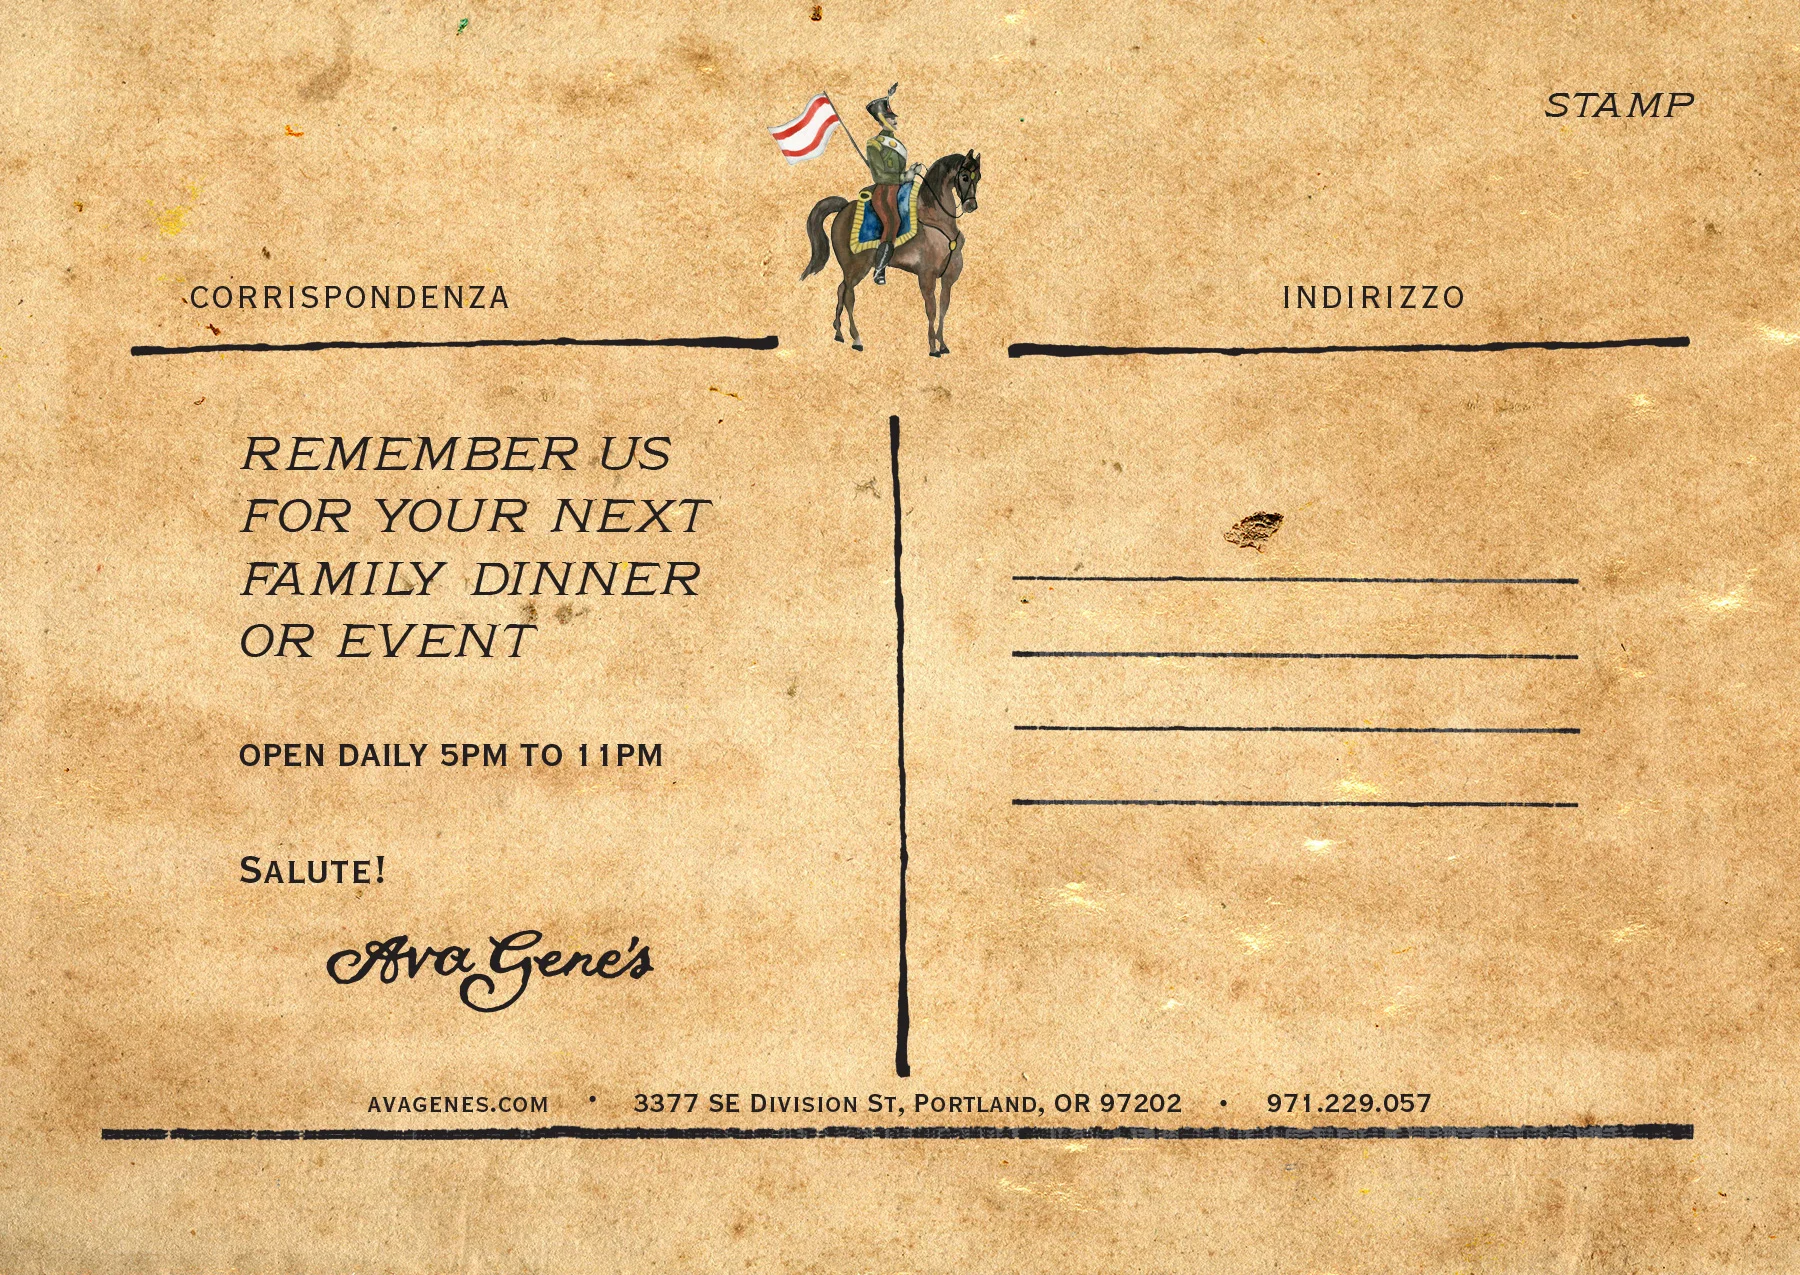 STAMP
CORRISPONDENZA
INDIRIZZO
REMEMBER US
FOR YOUR NEXT
FAMILY DINNER
OR EVENT
OPEN DAILY 5PM TO 11PM
SALUTE!
Ava Gene's
AVAGENES.COM • 3377 SE DIVISION ST, PORTLAND, OR 97202 • 971.229.057